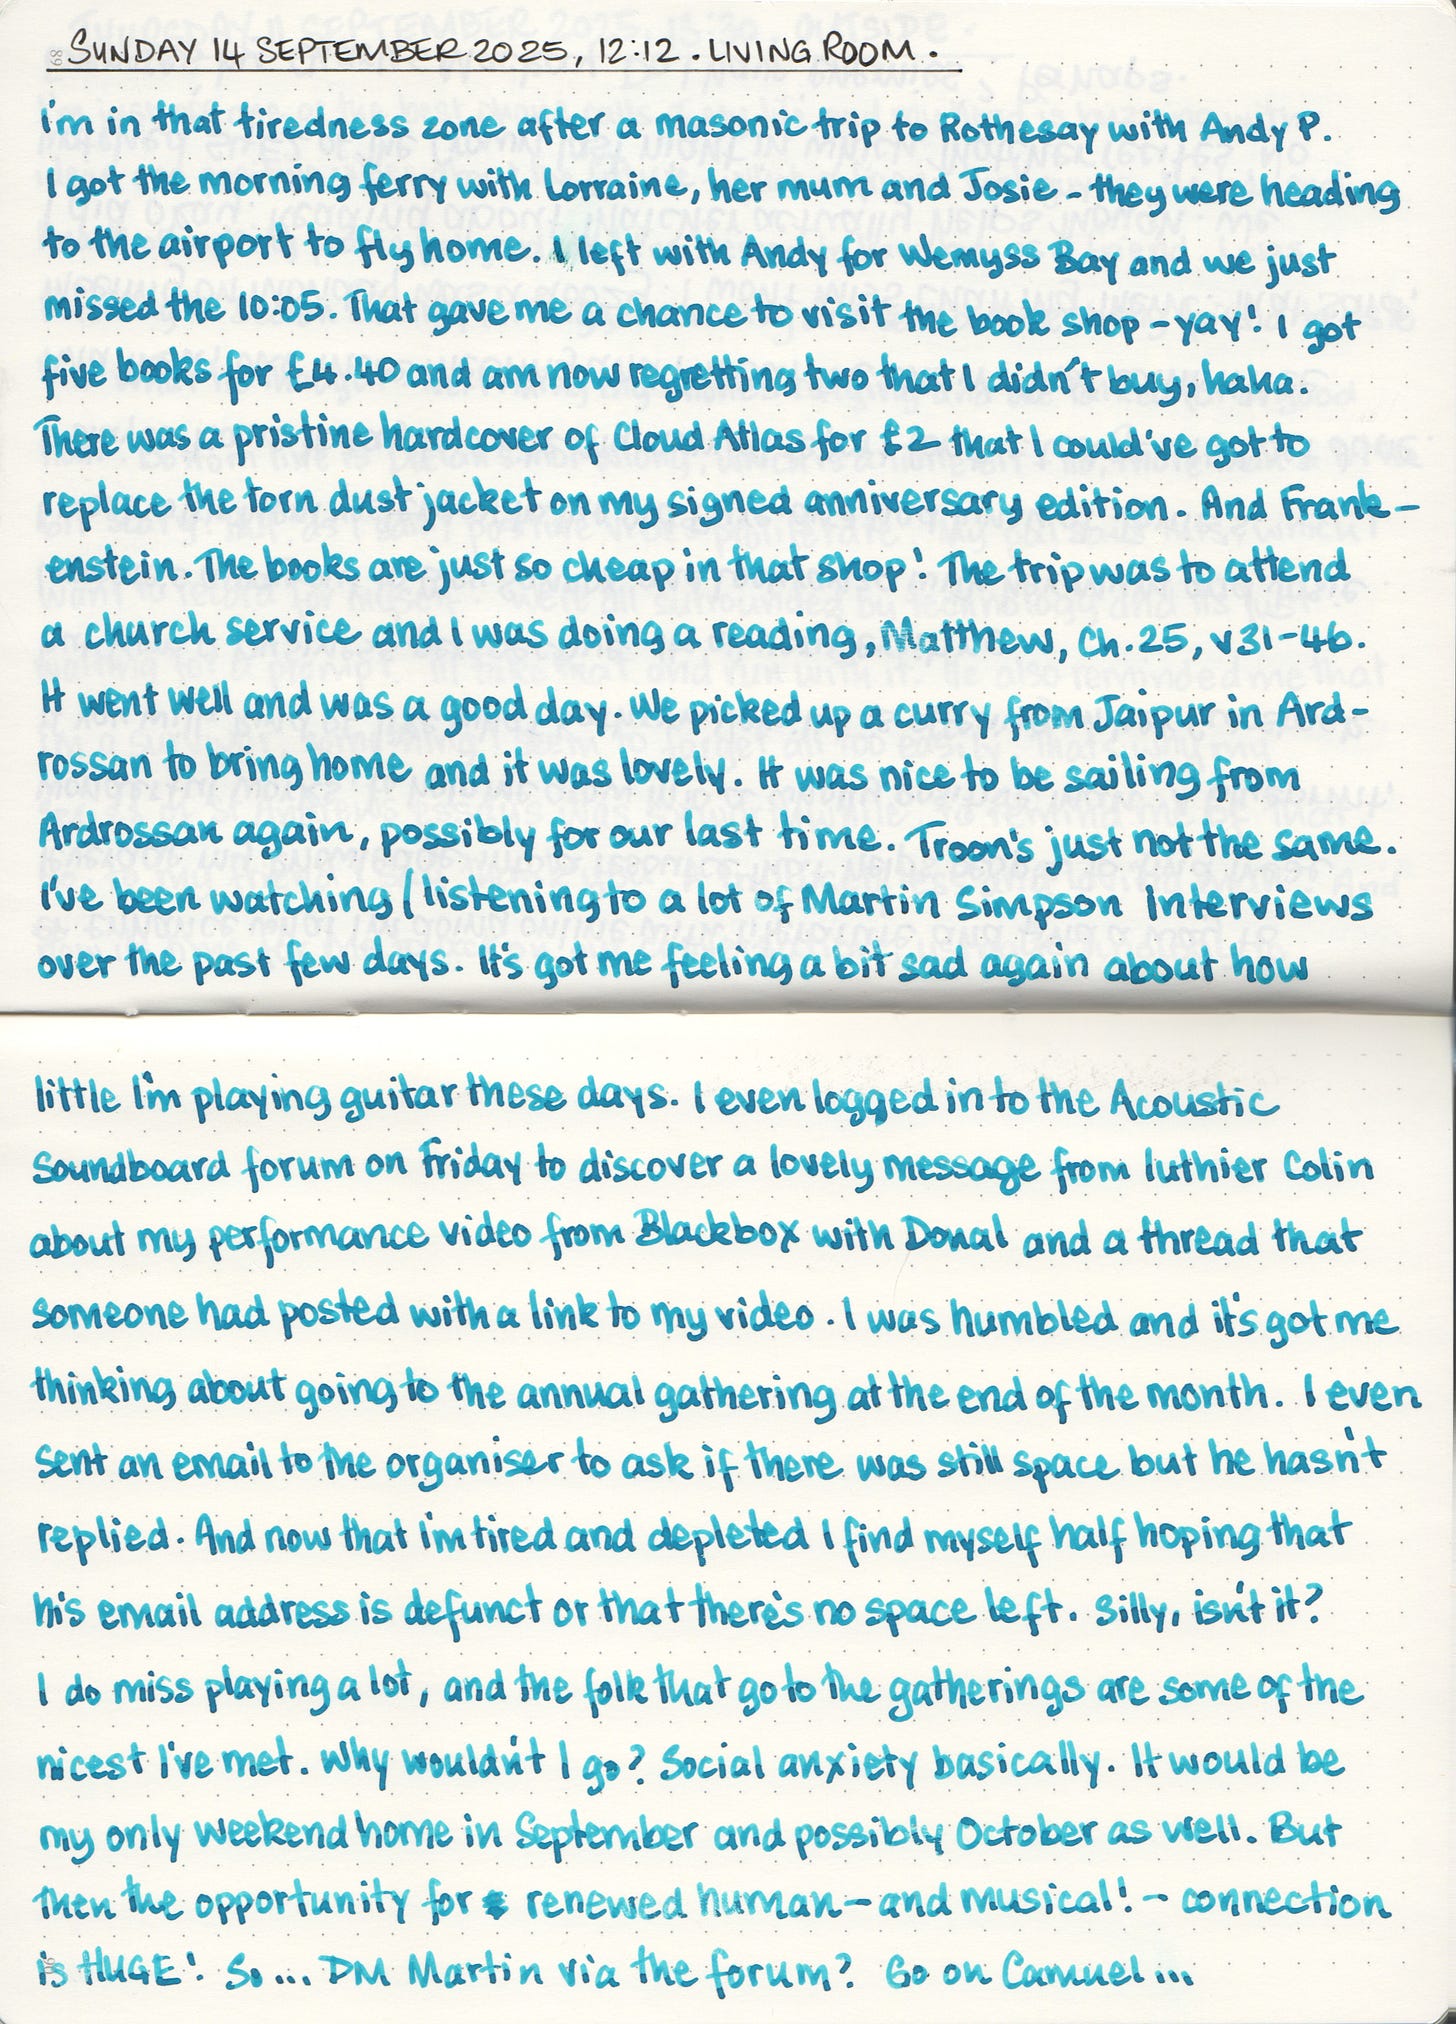 SUNDAY 14 SEPTEMBER 2025, 12:12. LIVING ROOM.
I'm in that tiredness zone after a masonic trip to Rothesay with Andy P.
I got the morning ferry with Lorraine, her mum and Josie - they were heading
to the airport to fly home. I left with Andy for Wemyss Bay and we just
missed the 10:05. That gave me a chance to visit the book shop - yay! I got
five books for £4.40 and am now regretting two that I didn't buy, haha.
There was a pristine hardcover of Cloud Atlas for £2 that I could've got to
replace the torn dust jacket on my signed anniversary edition. And Frank-
enstein. The books are just so cheap in that shop! The trip was to attend
a church service and I was doing a reading, Matthew, Ch.25, v31-46.
It went well and was a good day. We picked up a curry from Jaipur in Ard-
rossan to bring home and it was lovely. It was nice to be sailing from
Ardrossan again, possibly for our last time. Troon's just not the same.
I've been watching/listening to a lot of Martin Simpson Interviews
over the past few days. It's got me feeling a bit sad again about how
little I'm playing guitar these days. I even logged in to the Acoustic
Soundboard forum on Friday to discover a lovely message from luthier Colin
about my performance video from Blackbox with Donal and a thread that
someone had posted with a link to my video. I was humbled and it's got me
thinking about going to the annual gathering at the end of the month. I even
sent an email to the organiser to ask if there was still space but he hasn't
replied. And now that I'm tired and depleted I find myself half hoping that
his email address is defunct or that there's no space left. Silly, isn't it?
I do miss playing a lot, and the folk that go to the gatherings are some of the
nicest I've met. Why wouldn't I go? Social anxiety basically. It would be
my only weekend home in September and possibly October as well. But
then the opportunity for renewed human - and musical! - connection
is HUGE! So... DM Martin via the forum? Go on Camuel...